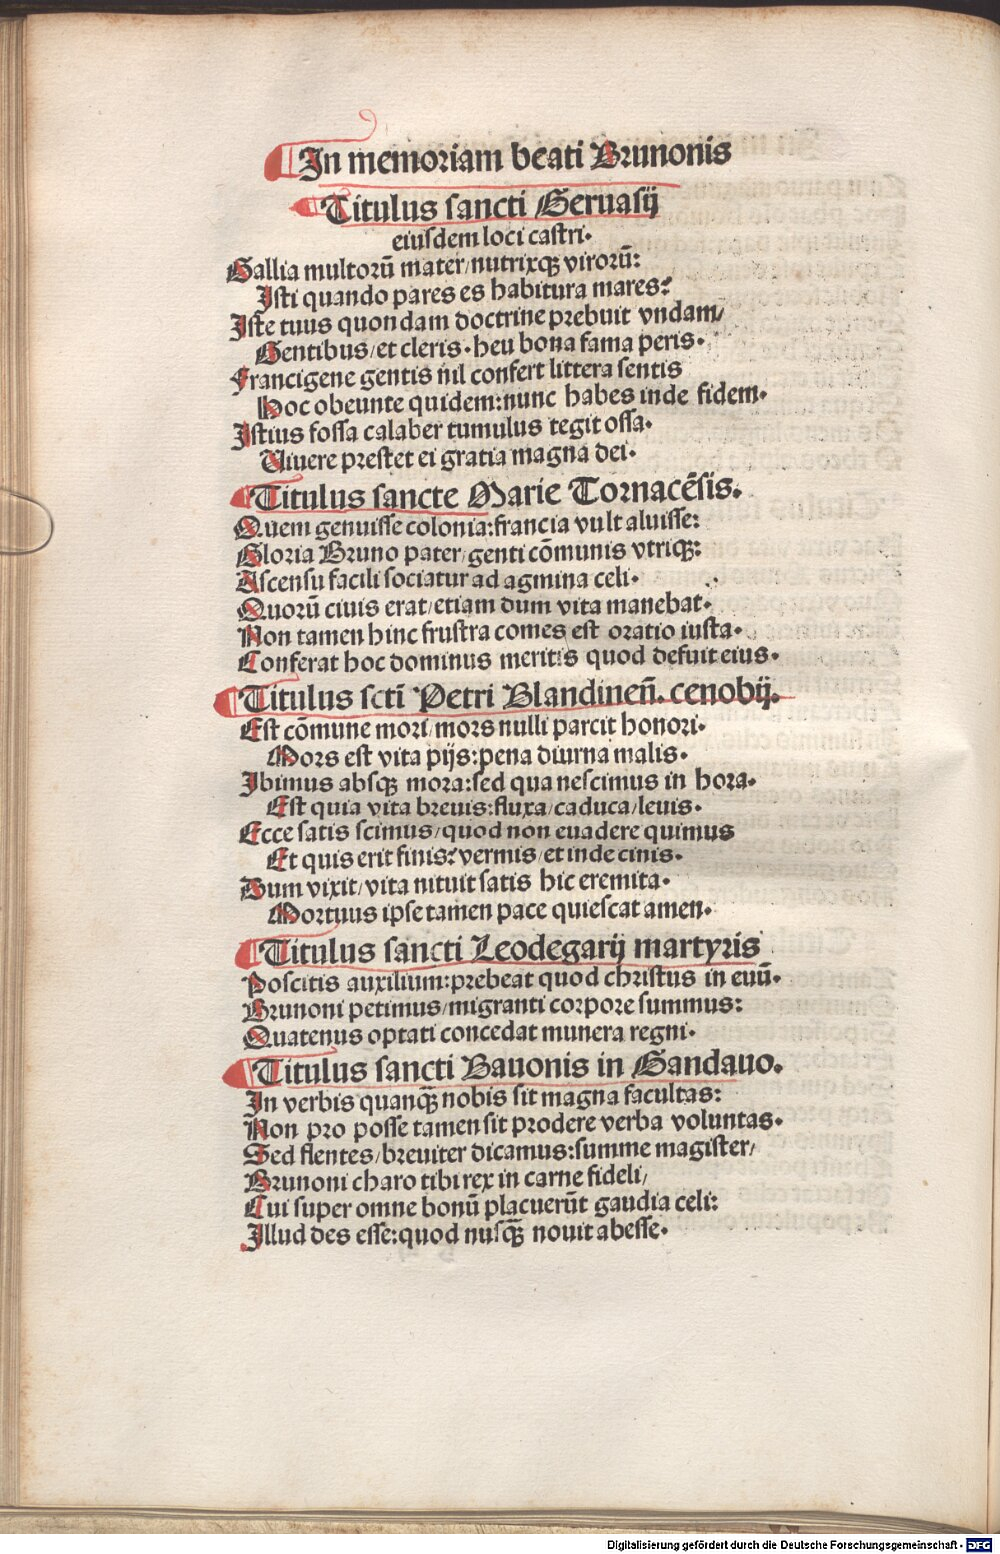 In memoriam beati Brunonis
Titulus sancti Geruasij
eiusdem loci castri.
Gallia multorū mater/nutrixqꝫ virorū:
Isti quando pares es habitura mares?
Iste tuus quondam doctrine prebuit vndam/
Gentibus/et cleris.heu bona fama peris.
Francigene gentis nil confert littera sentis
Hoc obeunte quidem:nunc habes inde fidem.
Istius fossa calaber tumulus tegit ossa.
Viuere prestet ei gratia magna dei.
Titulus sancte Marie Tornacēsis.
Quem genuisse colonia:francia vult aluisse:
Gloria Bruno pater/genti cōmunis vtriqꝫ:
Ascensu facili sociatur ad agmina celi.
Quorū ciuis erat/etiam dum vita manebat.
Non tamen hinc frustra comes est oratio iusta.
Conferat hoc dominus meritis quod defuit eius.
Titulus sctī Petri Blandineñ. cenobij.
Est cōmune mori/mors nulli parcit honori.
Mors est vita pijs:pena diurna malis.
Ibimus absqꝫ mora:sed qua nescimus in hora.
Est quia vita breuis:fluxa/caduca/leuis.
Ecce satis scimus/quod non euadere quimus
Et quis erit finis?vermis/et inde cinis.
Dum vixit/vita nituit satis hic eremita.
Mortuus ipse tamen pace quiescat amen.
Titulus sancti Leodegarij martyris
Poscitis auxilium:prebeat quod christus in euū.
Brunoni petimus/migranti corpore summus:
Quatenus optati concedat munera regni.
Titulus sancti Bauonis in Gandauo.
In verbis quanqꝫ̄ nobis sit magna facultas:
Non pro posse tamen sit prodere verba voluntas.
Sed flentes/breuiter dicamus:summe magister/
Brunoni charo tibi rex in carne fideli/
Cui super omne bonū placuerūt gaudia celi:
Illud des esse:quod nusqꝫ̄ nouit abesse.
Digitalisierung gefördert durch die Deutsche Forschungsgemeinschaft - DFG